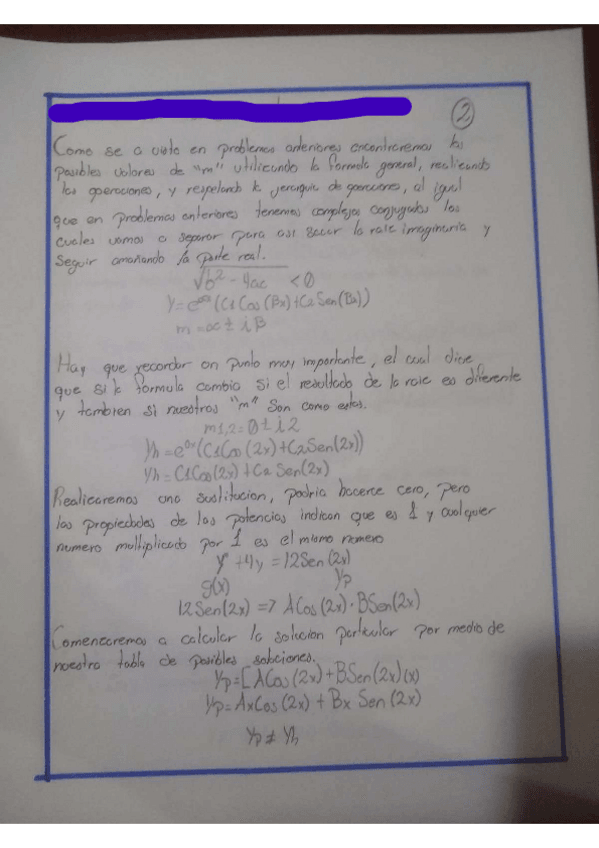 2
Como se a visto en problemas anteriores encontraremos los
posibles valores de "m" utilizando la formula general, realizando
las operaciones, y respetando la jerarquia de operaciones, al igual
que en problemas anteriores tenemos complejos conjugados los
cuales vamos a separar para asi sacar la raíz imaginaria y
seguir amañando la parte real.
√b² - 4ac < 0
y = e^∝x (C1 Cos (Bx) + C2 Sen (Bx))
m = ∝ ± i β
Hay que recordar un punto muy importante, el cual dice
que si la formula cambia si el resultado de la raiz es diferente
y tambien si nuestros "m" son como estos.
m1,2 = 0 ± i2
Yh = e^0x (C1 Cos (2x) + C2 Sen(2x))
Yh = C1 Cos(2x) + C2 Sen(2x)
Realizaremos una sustitucion, podria hacerce cero, pero
las propiedades de las potencias indican que es 1 y cualquier
numero multiplicado por 1 es el mismo numero
y" + 4y = 12 Sen (2x)
g(x) Yp
12 Sen(2x) => A Cos (2x) · B Sen(2x)
Comenzaremos a calcular la solucion particular por medio de
nuestra tabla de posibles soluciones.
Yp = [A Cos (2x) + B Sen (2x) (x)
Yp = Ax Cos (2x) + Bx Sen (2x)
Yp ≠ Yh